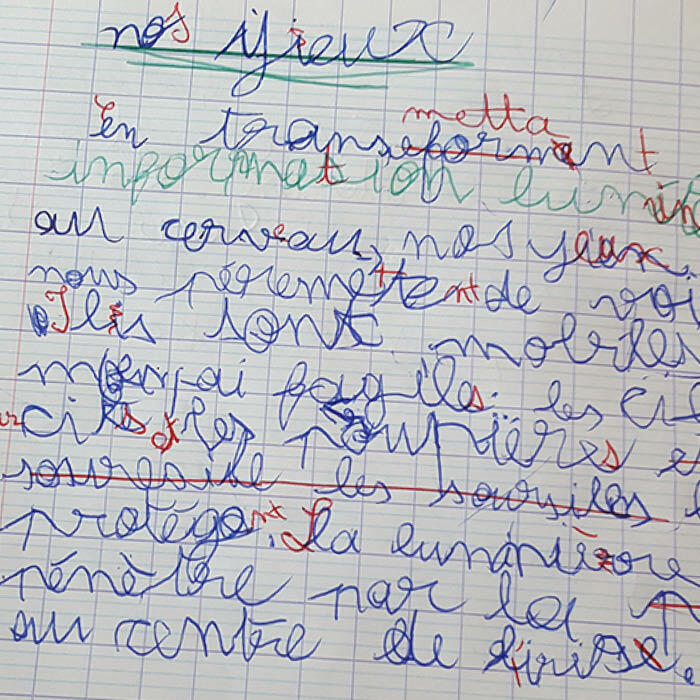 nos yieux
metta
En transeformant
information lumin
au cerveau, nos yeux.
nous péremettent de voi
Ils sont mobiles
fragiles. les ci
cils et les poupières e
les sourciles
protégent. La luminière
pénètre par la
au centre de l'irise.